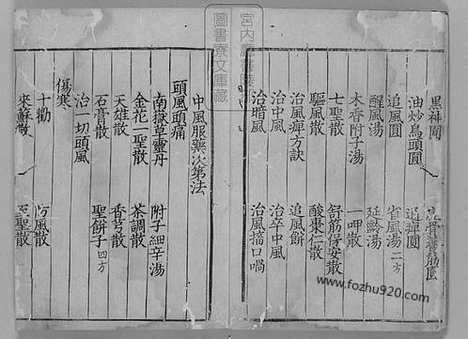 宮内
圖書寮文庫藏
黑神圓
油炒烏頭圓　追痹圓
追風圓　省風湯二方
醒風湯　延齡湯
木香附子湯　一呷散
七聖散　舒筋保安散
驅風散　酸棗仁散
治風痹方訣　追風餅
治中風　治卒中風
治暗風　治風搐口喎
中風服藥次第法
頭風頭痛
南嶽草靈丹　附子細辛湯
金花一聖散　茶調散
天雄散　香芎散
石膏散　聖餅子四方
治一切頭風
傷寒
十勸　防風散
來蘇散　聖散
www.fozhu920.com